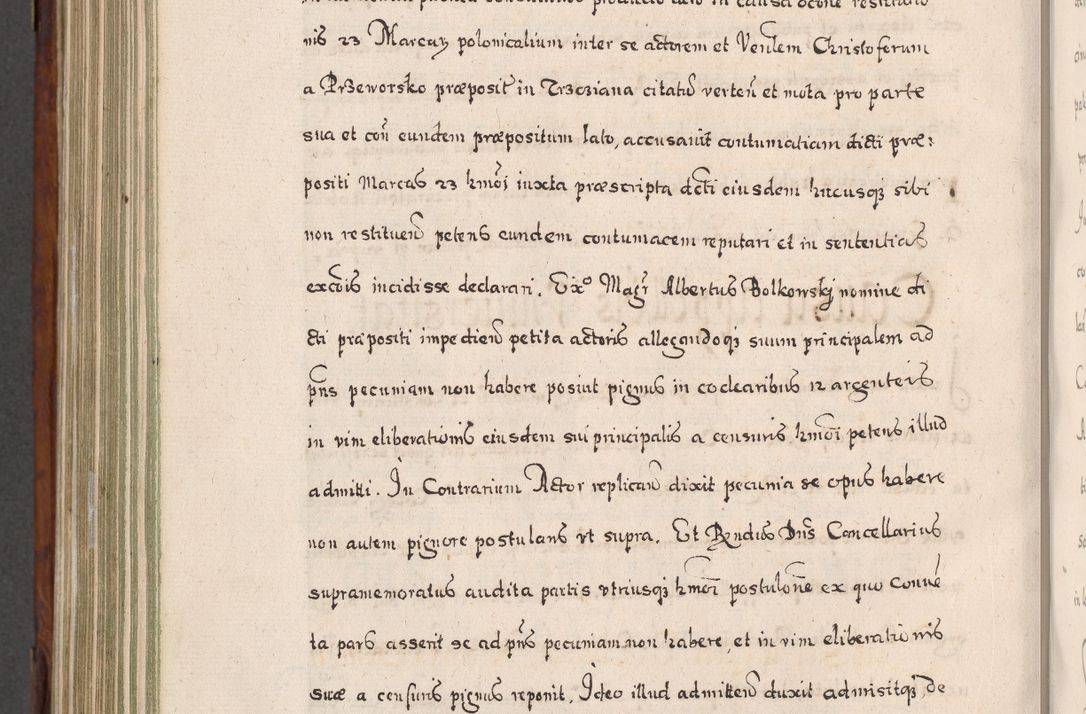 nis 23 Marcas polonicalium inter se actorem et Venlem Christoferum
a Przeworsko præposit in Trzcziana citatū verten̄ et mota pro parte
sua et con̄ eundem præpositum lato, accusavit contumatiam dicti præ:
positi Marcas 23 hmōi iuxta præscripta dcti eiusdem hucusqz sibi
non restituen̄ petens eundem contumacem reputari et in sententias
excōis incidisse declarari. Exo Magr Albertus Bolkowskj nomine di
cti præpositi impedien̄ petita actoris allegandoqz suum principalem ad
pn̄s pecuniam non habere posint pignus in coclearibus 12 argenteis
in vim eliberationis eiusdem sui principalis a censuris hmōi petens illud
admitti. In Contrarium Actor replican̄ dixit pecunia se opus habere
non autem pignore postulans vt supra. Et Rndus Dn̄s Cancellarius
supramemoratus audita partis vtriusqz hmōi postulōne ex quo Convē
ta pars asserit se ad pn̄s pecuniam non habere, et in vim eliberationis
suæ a censuris pignus reponit. Ideo illud admitten̄ duxit admisitqz, de